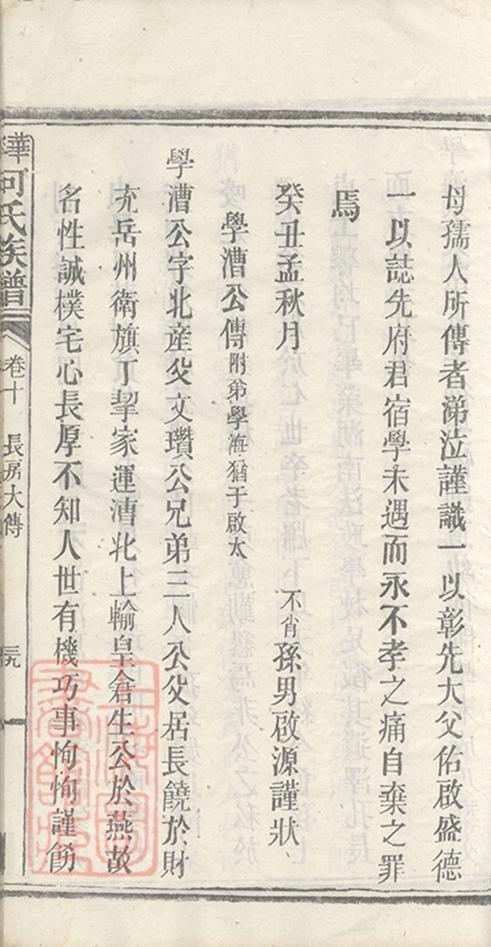 母孺人所傳者涕泣謹識一以彰先大父佑啟盛德
一以誌先府君宿學未遇而永不孝之痛自棄之罪
焉
癸丑孟秋月 不肖孫男啟源謹狀
學漕公傳附弟學海猶于啟太
學漕公字北産父文瓚公兄弟三人公父居長饒於財
充岳州衛旗丁挈家運漕北上輸皇倉生公於燕故
名性誠樸宅心長厚不知人世有機巧事恂恂謹飭
華 何氏族譜 卷十 長房大傳 三九